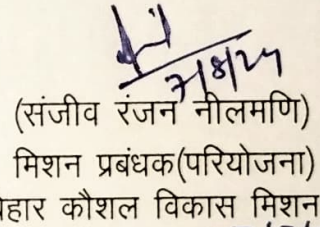 7/8/24
(संजीव रंजन नीलमणि)
मिशन प्रबंधक(परियोजना)
बिहार कौशल विकास मिशन